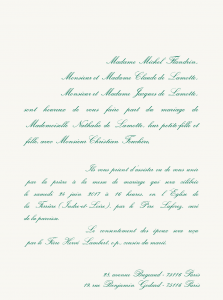 Madame Michel Flandrin,
Monsieur et Madame Claude de Lamotte,
Monsieur et Madame Jacques de Lamotte,
sont heureux de vous faire part du mariage de
Mademoiselle Nathalie de Lamotte, leur petite-fille et
fille, avec Monsieur Christian
Ils vous prient d'assister ou de vous unir
par la prière à la messe de mariage qui sera célébrée
le samedi 24 juin 2017 à 16 heures, en l'Église de
la Ferrière (Indre-et-Loire), par le Père
de la paroisse.
Le consentement des époux sera reçu
par le Père Hervé Lambert, o.p., cousin du marié.
23, avenue Bugeaud - 75116 Paris
19, rue Benjamin Godard - 75116 Paris